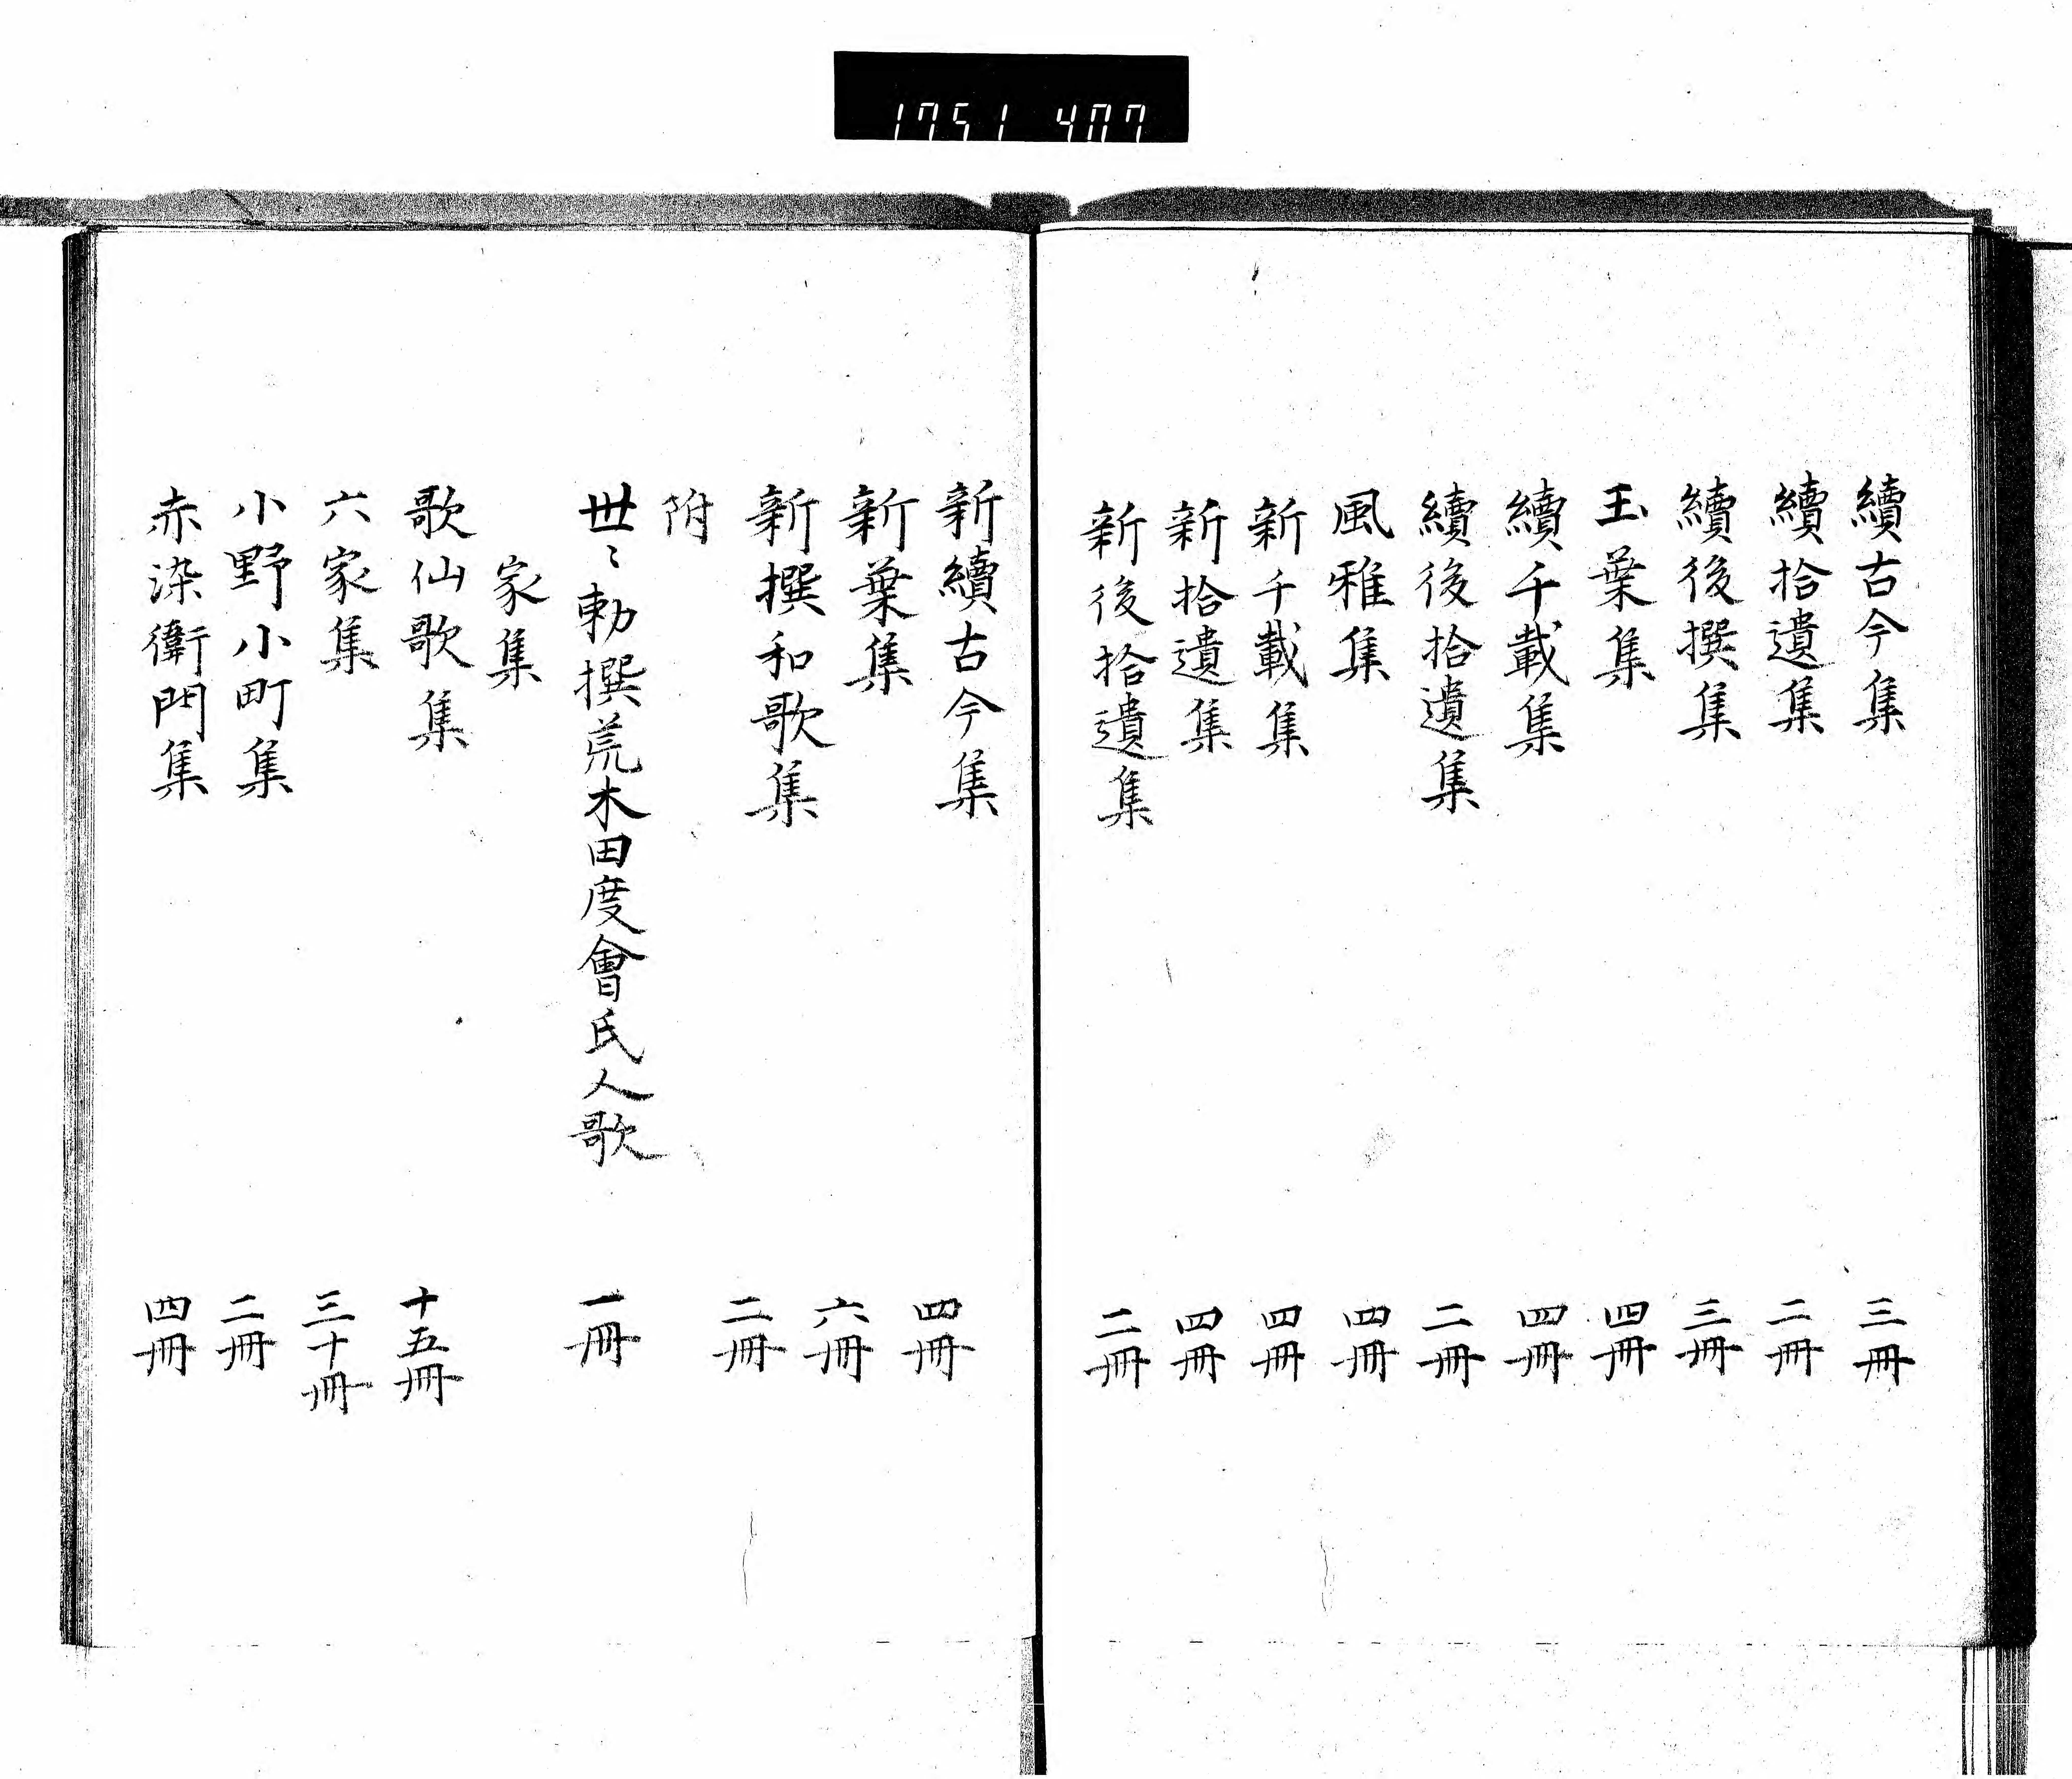 1751 407
續古今集 三冊
續拾遺集 二冊
續後撰集 三冊
玉葉集 四冊
續千載集 四冊
續後拾遺集 二冊
風雅集 四冊
新千載集 四冊
新拾遺集 四冊
新後拾遺集 二冊
新續古今集 四冊
新葉集 六冊
新撰和歌集 二冊
附
丗〻勅撰荒木田度會氏人歌 一冊
家集
歌仙歌集 十五冊
六家集 三十冊
小野小町集 二冊
赤染衛門集 四冊